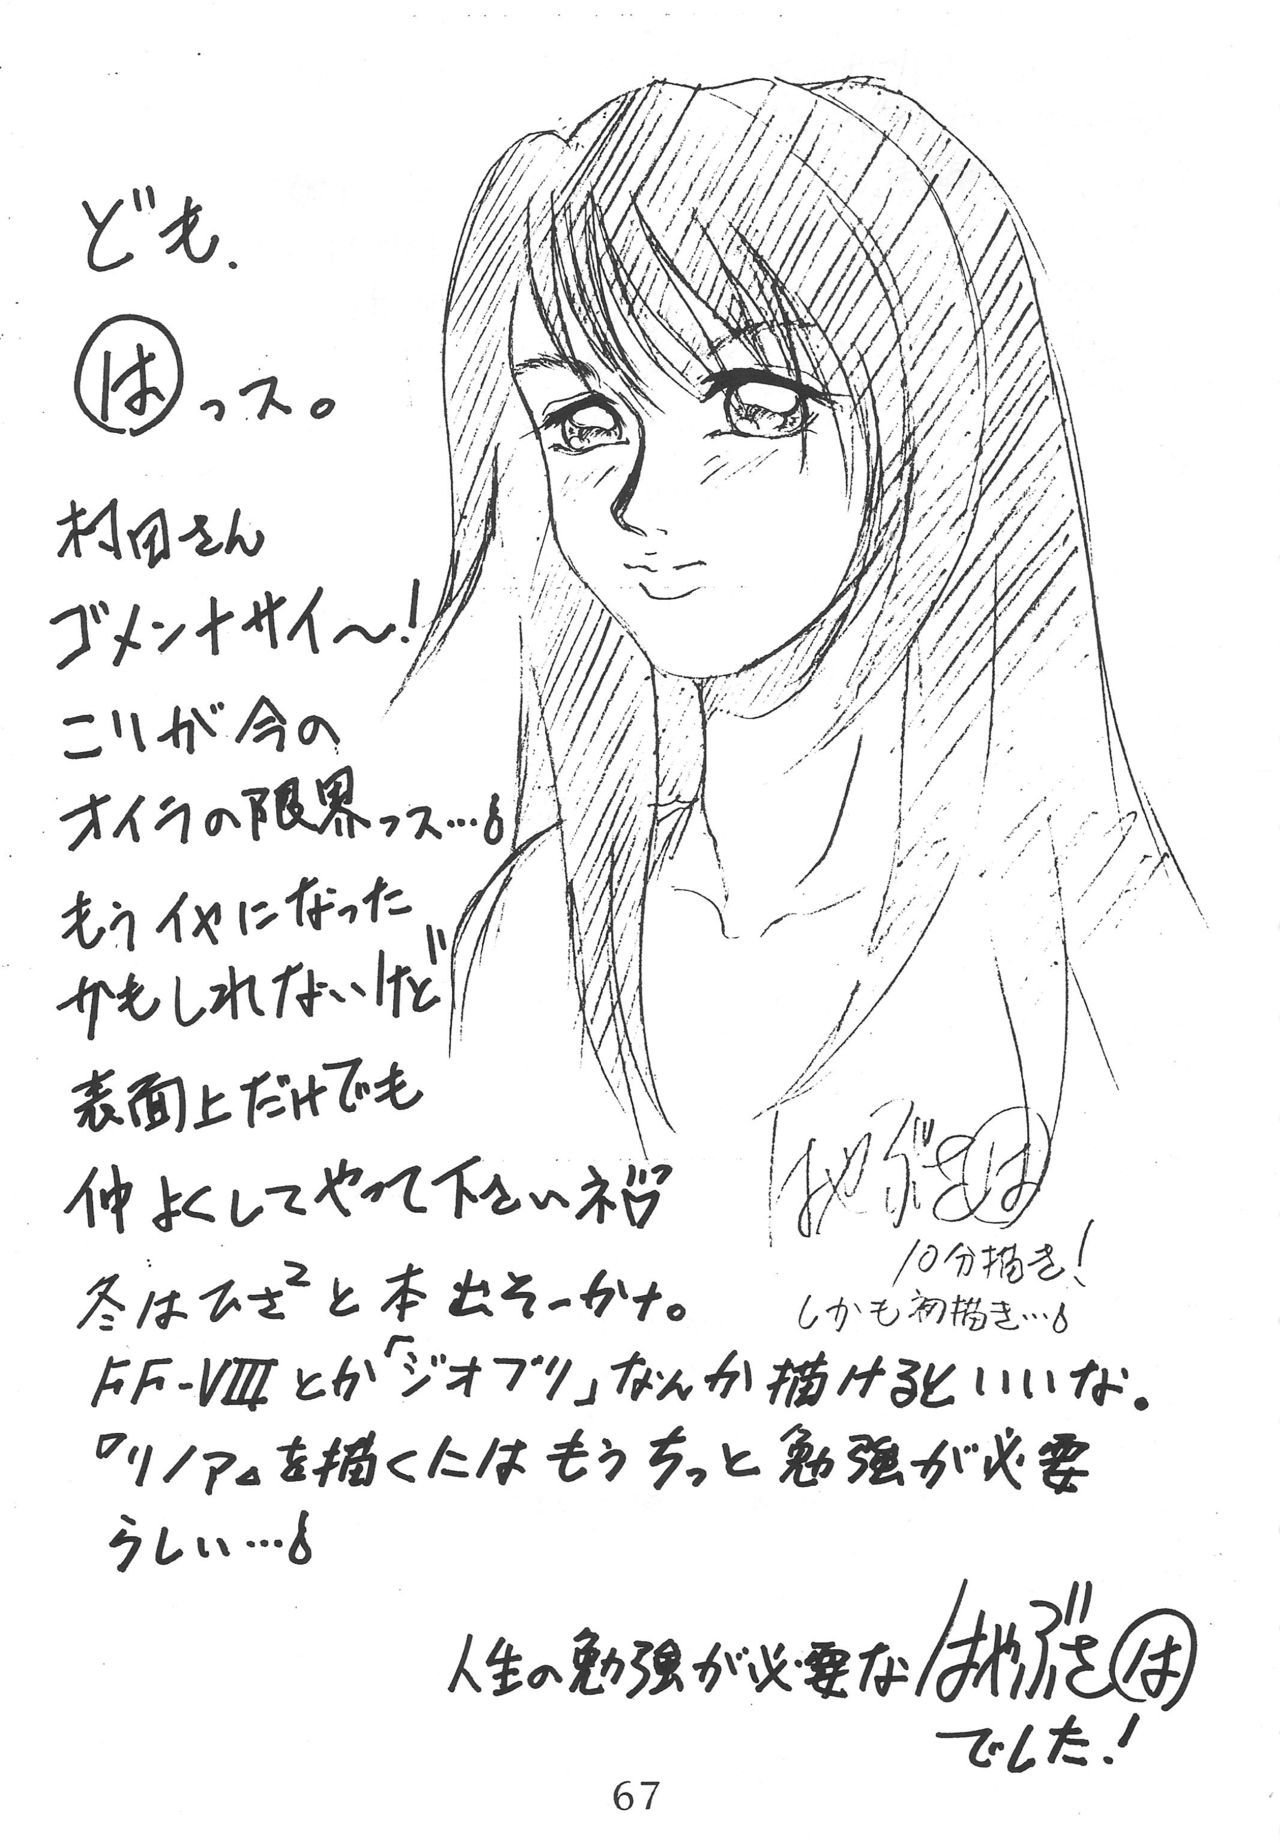 ども.
はっス。
村田さん
ゴメンナサイ〜!
こりが今の
オイラの限界っス…
もうイヤになった
かもしれないけど
表面上だけでも
仲よくしてやって下さいネ
はやぶさは
10分描き!
しかも初描き…
冬はひさ²と本出そーかナ。
FF-VIIIとか「ジオブリ」なんか描けるといいな.
『リノア』を描くにはもうちっと勉強が必要
らしい…
人生の勉強が必要なはやぶさは
でした!
67